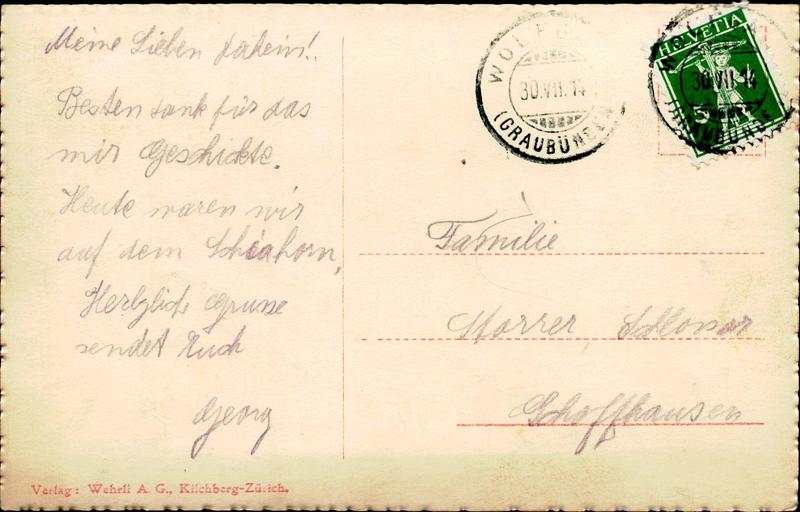 Meine Lieben daheim!.
Besten dank für das
mir Geschickte.
Heute waren wir
auf dem Schiahorn,
Herzliche Grüsse
sendet Euch
Georg
WOLFG
30.VII.14
(GRAUBÜNDEN
HELVETIA
5
30.VII.14
Familie
Schlosser
Schaffhausen
Verlag: Wehrli A. G., Kilchberg-Zürich.